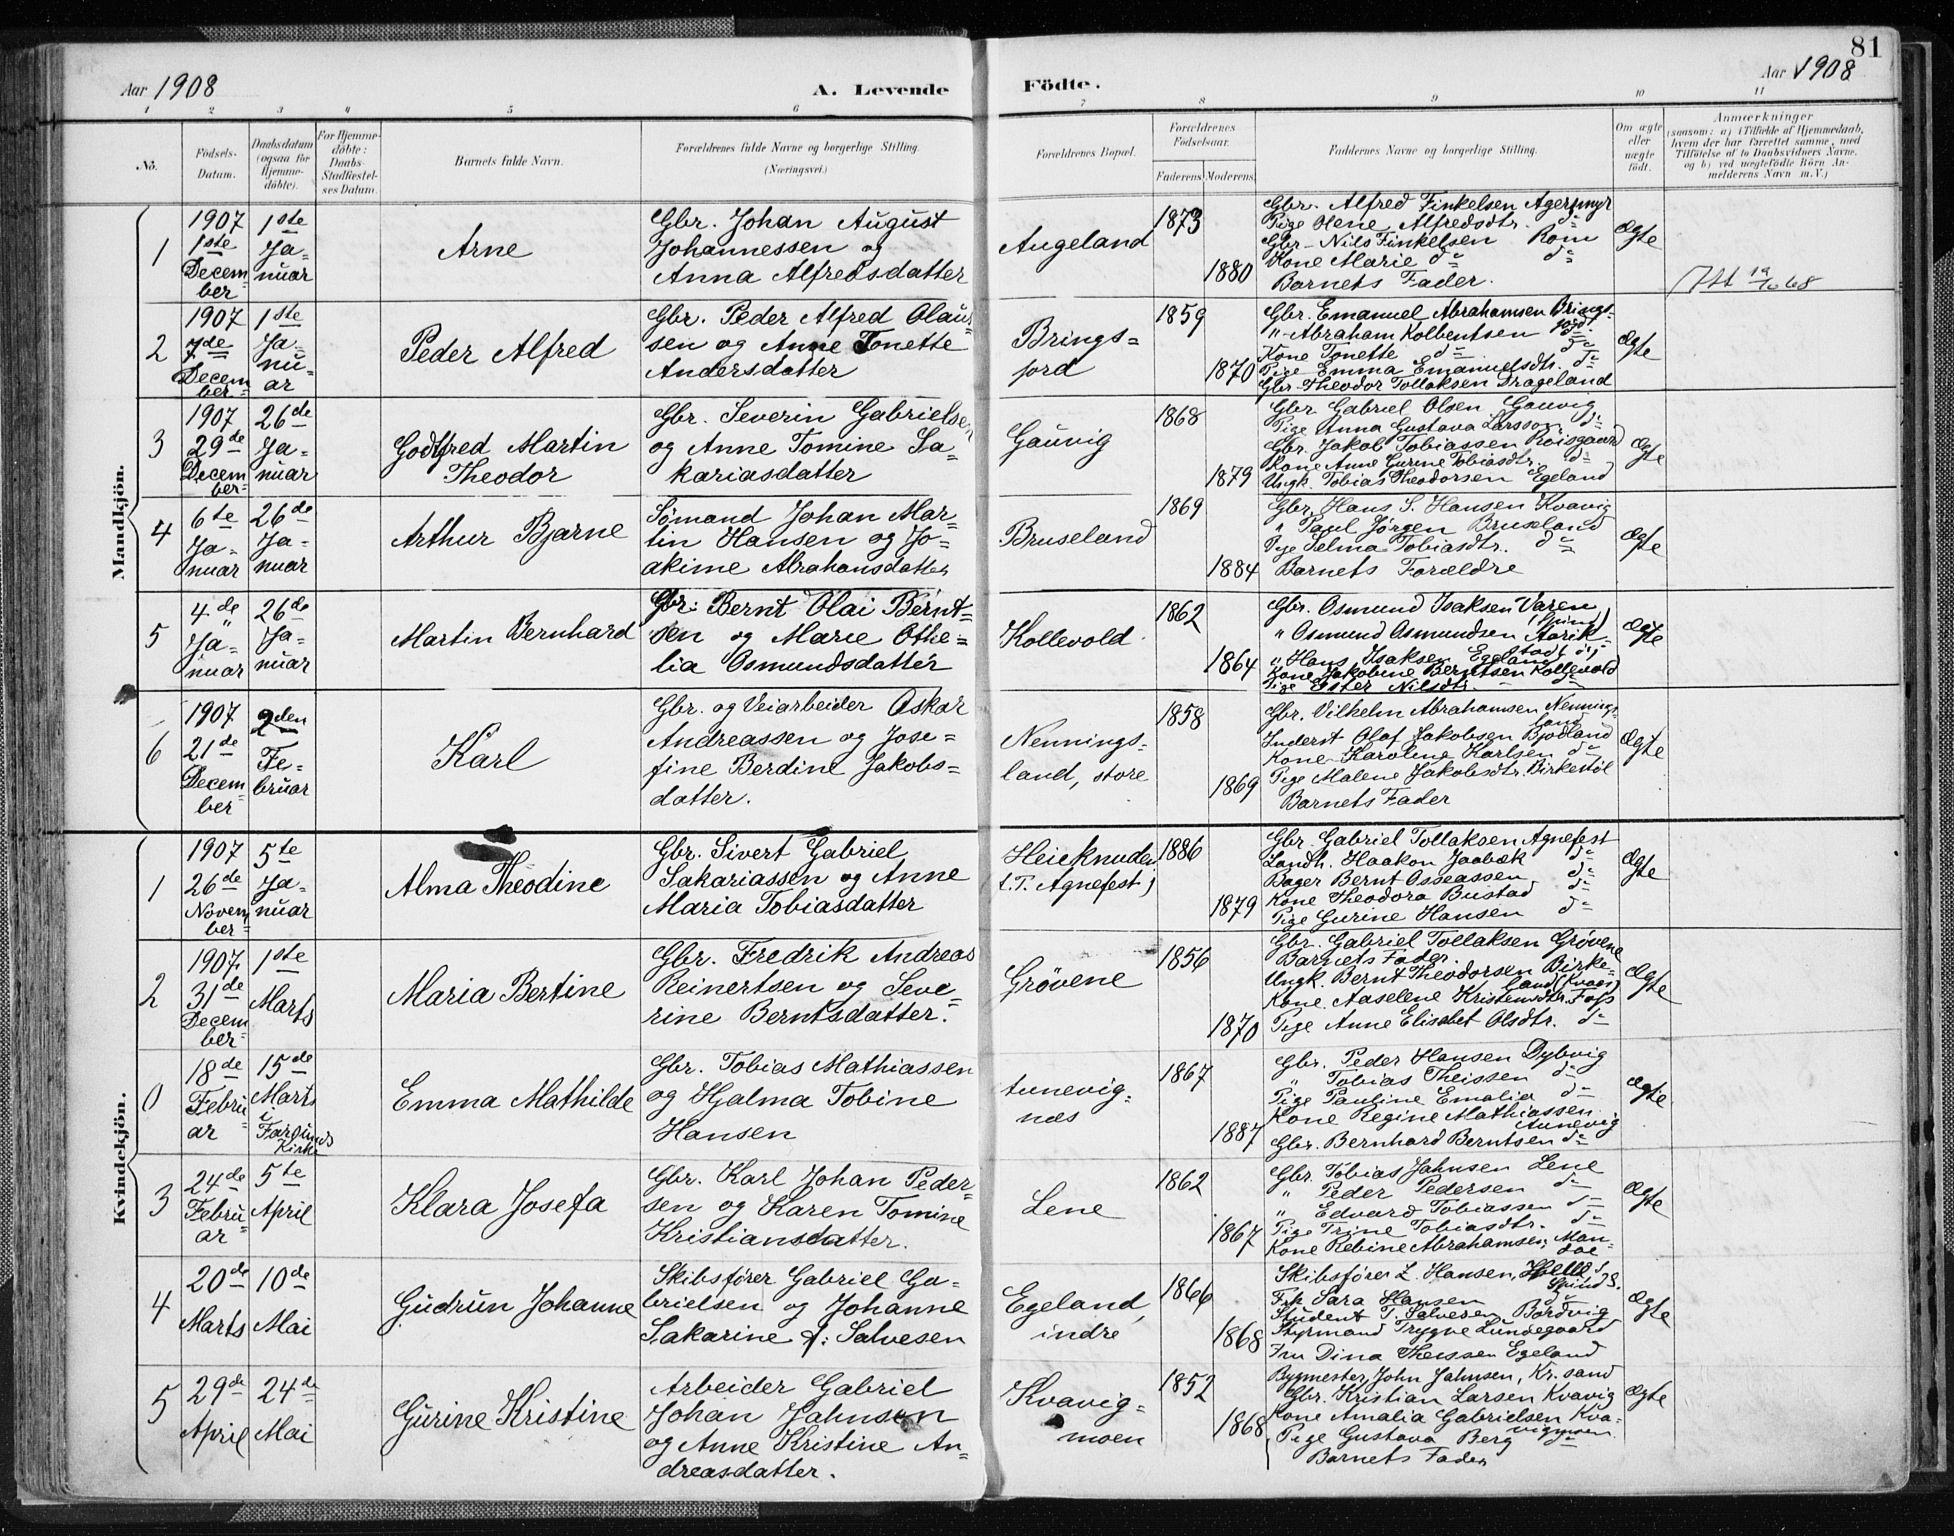 81
Aar 1908
A. Levende
Födte.
Aar 1908
1 2 3 4 5 6 7 8 9 10 11
No.
Födsels-
Datum.
Daabsdatum
(ogsaa for
Hjemme-
döbte).
For Hjemme-
döbte:
Daabs-
Stadfæstel-
ses Datum.
Barnets fulde Navn.
Forældrenes fulde Navne og borgerlige Stilling.
(Næringsvei.)
Forældrenes Bopæl.
Forældrenes
Födselsaar.
Faderens. Moderens.
Faddernes Navne og borgerlige Stilling.
Om ægte
eller
uægte
födt.
Anmærkninger
(saasom: a) i Tilfælde af Hjemmedaab,
hvem der har forrettet samme, med
Tilföielse af to Daabsvidners Navne.
og b) ved uægtefödte Börn An-
melderens Navn m. V.)
Mandkjön.
1
1907
1ste
Decem
ber
1ste
Ja-
nuar
Arne
Gbr. Johan August
Johannessen og
Anna Alfredsdatter
Augeland
1873
1880
Gbr. Alfred Finkelsen Agersmyr
Pige Alfredsdtr. do
Gbr. Nils Finkelsen Rom
Kone Marie do do
Barnets Fader.
Ægte
2
1907
7de
Decem
ber
1ste
Ja-
nu-
ar
Peder Alfred
Gbr. Peder Alfred Olaus-
sen og Anne Tonette
Andersdatter
Brings-
jord
1859
1870
Gbr. Emanuel Abrahamsen Brings-
jord
" Abraham Kolbentsen do
Kone Tonette do do
Pige Emma Emanuelsdtr. do
Gbr. Theodor Tollaksen Drageland
Ægte
3
1907
29de
Decem
ber
26de
Ja-
nuar
Godtfred Martin
Theodor
Gbr. Severin Gabrielsen
og Anne Tomine Sa-
kariasdatter
Gauvig
1868
1879
Gbr. Gabriel Olsen Gauvig
Pige Anna Gustava Larsson do
Gbr. Jakob Tobiassen Roisgaard
Kone Anne Gurine Tobiasdtr. do
Ungk. Tobias Theodorsen Egeland
Ægte
4
6te
Ja-
nuar
26de
Ja-
nuar
Arthur Bjarne
Sømand Johan Mar-
tin Hansen og Jo-
akime Abrahamsdatter
Bruseland
1869
1884
Gbr. Hans S. Hansen Kvavig
" Paul Jørgen Bruseland
Pige Selma Tobiasdtr. do
Barnets Forældre
Ægte
5
4de
Ja-
nuar
26de
Ja-
nuar
Martin Bernhard
Gbr. Bernt Olai Bernt-
sen og Marie Othe-
lia Osmundsdatter
Kollevold
1862
1864
Gbr. Osmund Isaksen Varen
(Spind)
" Osmund Osmundsen
" Hans Isaksen Egeland
Kone Jakobine Berntsen Kollevold
Pige Ester Nilsdtr.
Ægte
6
1907
21de
Decem
ber
2den
Fe-
bruar
Karl
Gbr. og Veiarbeider Oskar
Andreassen og Jose-
fine Berdine Jakobs-
datter.
Nennings-
land, store
1858
1869
Gbr. Vilhelm Abrahamsen Nennings-
land
Inderst Olaf Jakobsen Bjodland
Kone Karoline Karlsen do
Pige Malene Jakobsdtr. Birkestöl
Barnets Fader
Ægte
Kvindekjön.
1
1907
26de
Novem
ber
5te
Ja-
nuar
Alma Theodine
Gbr. Sivert Gabriel
Sakariassen og Anne
Maria Tobiasdatter
Heieknuden
(.T. Agnefest)
1886
1879
Gbr. Gabriel Tollaksen Agnefest
Landh. Haakon Jaabæk do
Bager Bernt Osseassen do
Kone Theodora Bustad do
Pige Gurine Hansen do
Ægte
2
1907.
31de
Decem
ber
1ste
Marts
Maria Bertine
Gbr. Fredrik Andreas
Reinertsen og Seve-
rine Berntsdatter.
Grövene
1856
1870
Gbr. Gabriel Tollaksen Grövene
Barnets Fader
Ungk. Bernt Theodorsen Birke-
land (Kvaas)
Kone Aaselene Kristensdtr. Foss
Pige Anne Elisabet Olsdtr. do
Ægte
0
18de
Febru
ar
15de
Marts
i
Farsunds
Kirke
Emma Mathilde
Gbr. Tobias Mathiassen
og Hjalma Tobine
Hansen
Aunevig-
næs
1867
1887
Gbr. Peder Hansen Dybvig
" Tobias Theissen do
Pige Pauline Emalia do
Kone Regine Mathiassen
Aunevig
Gbr. Bernhard Berntsen do
Ægte
3
24de
Febru-
ar
5te
April
Klara Josefa
Gbr. Karl Johan Peder-
sen og Karen Tomine
Kristiansdatter.
Lene
1862
1867
Gbr. Tobias Jahnsen Lene
" Peder Pedersen do
" Edvard Tobiassen do
Pige Trine Tobiasdtr. do
Kone Rebine Abrahamsen, Man-
dae
Ægte
4
20de
Marts
10de
Mai
Gudrun Johanne
Skibsfører Gabriel Ga-
brielsen og Johanne
Sakarine f: Salvesen
Egeland,
indre
1866
1868
Skibsfører L. Hansen,
Spind S.
Frk Sara Hansen do
Student T. Salvesen Bordvig
Styrmand Trygve Lundegaard
Fru Dina Theissen Egeland
Ægte
5
29de
April
24de
Mai
Gurine Kristine
Arbeider Gabriel
Johan Jahnsen
og Anne Kristine An-
dreasdatter.
Kvavig-
moen
1852
1868
Bygmester John Jahnsen, Kr. sand
Gbr. Kristian Larsen Kvavig
Kone Amalia Gabrielsen Kva-
vigmoen
Pige Gustava Berg do
Barnets Fader
Ægte